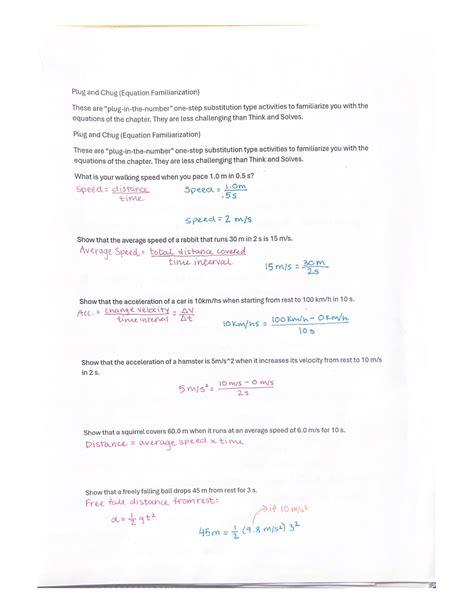 Plug and Chug (Equation Familiarization)
These are "plug-in-the-number" one-step substitution type activities to familiarize you with the
equations of the chapter. They are less challenging than Think and Solves.
Plug and Chug (Equation Familiarization)
These are "plug-in-the-number" one-step substitution type activities to familiarize you with the
equations of the chapter. They are less challenging than Think and Solves.
What is your walking speed when you pace 1.0 m in 0.5 s?
Speed = distance / time Speed = 1.0m / .5s
speed = 2 m/s
Show that the average speed of a rabbit that runs 30 m in 2 s is 15 m/s.
Average Speed = total distance covered / time interval
15 m/s = 30m / 2s
Show that the acceleration of a car is 10km/hs when starting from rest to 100 km/h in 10 s.
Acc. = change velocity / time interval = ΔV / Δt
10 Km/hs = 100 Km/h - 0 Km/h / 10 s
Show that the acceleration of a hamster is 5m/s^2 when it increases its velocity from rest to 10 m/s
in 2 s.
5 m/s² = 10 m/s - 0 m/s / 2s
Show that a squirrel covers 60.0 m when it runs at an average speed of 6.0 m/s for 10 s.
Distance = average speed x time
Show that a freely falling ball drops 45 m from rest for 3 s.
Free fall distance from rest:
→ if 10 m/s²
d = 1/2 gt²
45m = 1/2 (9.8 m/s²) 3²